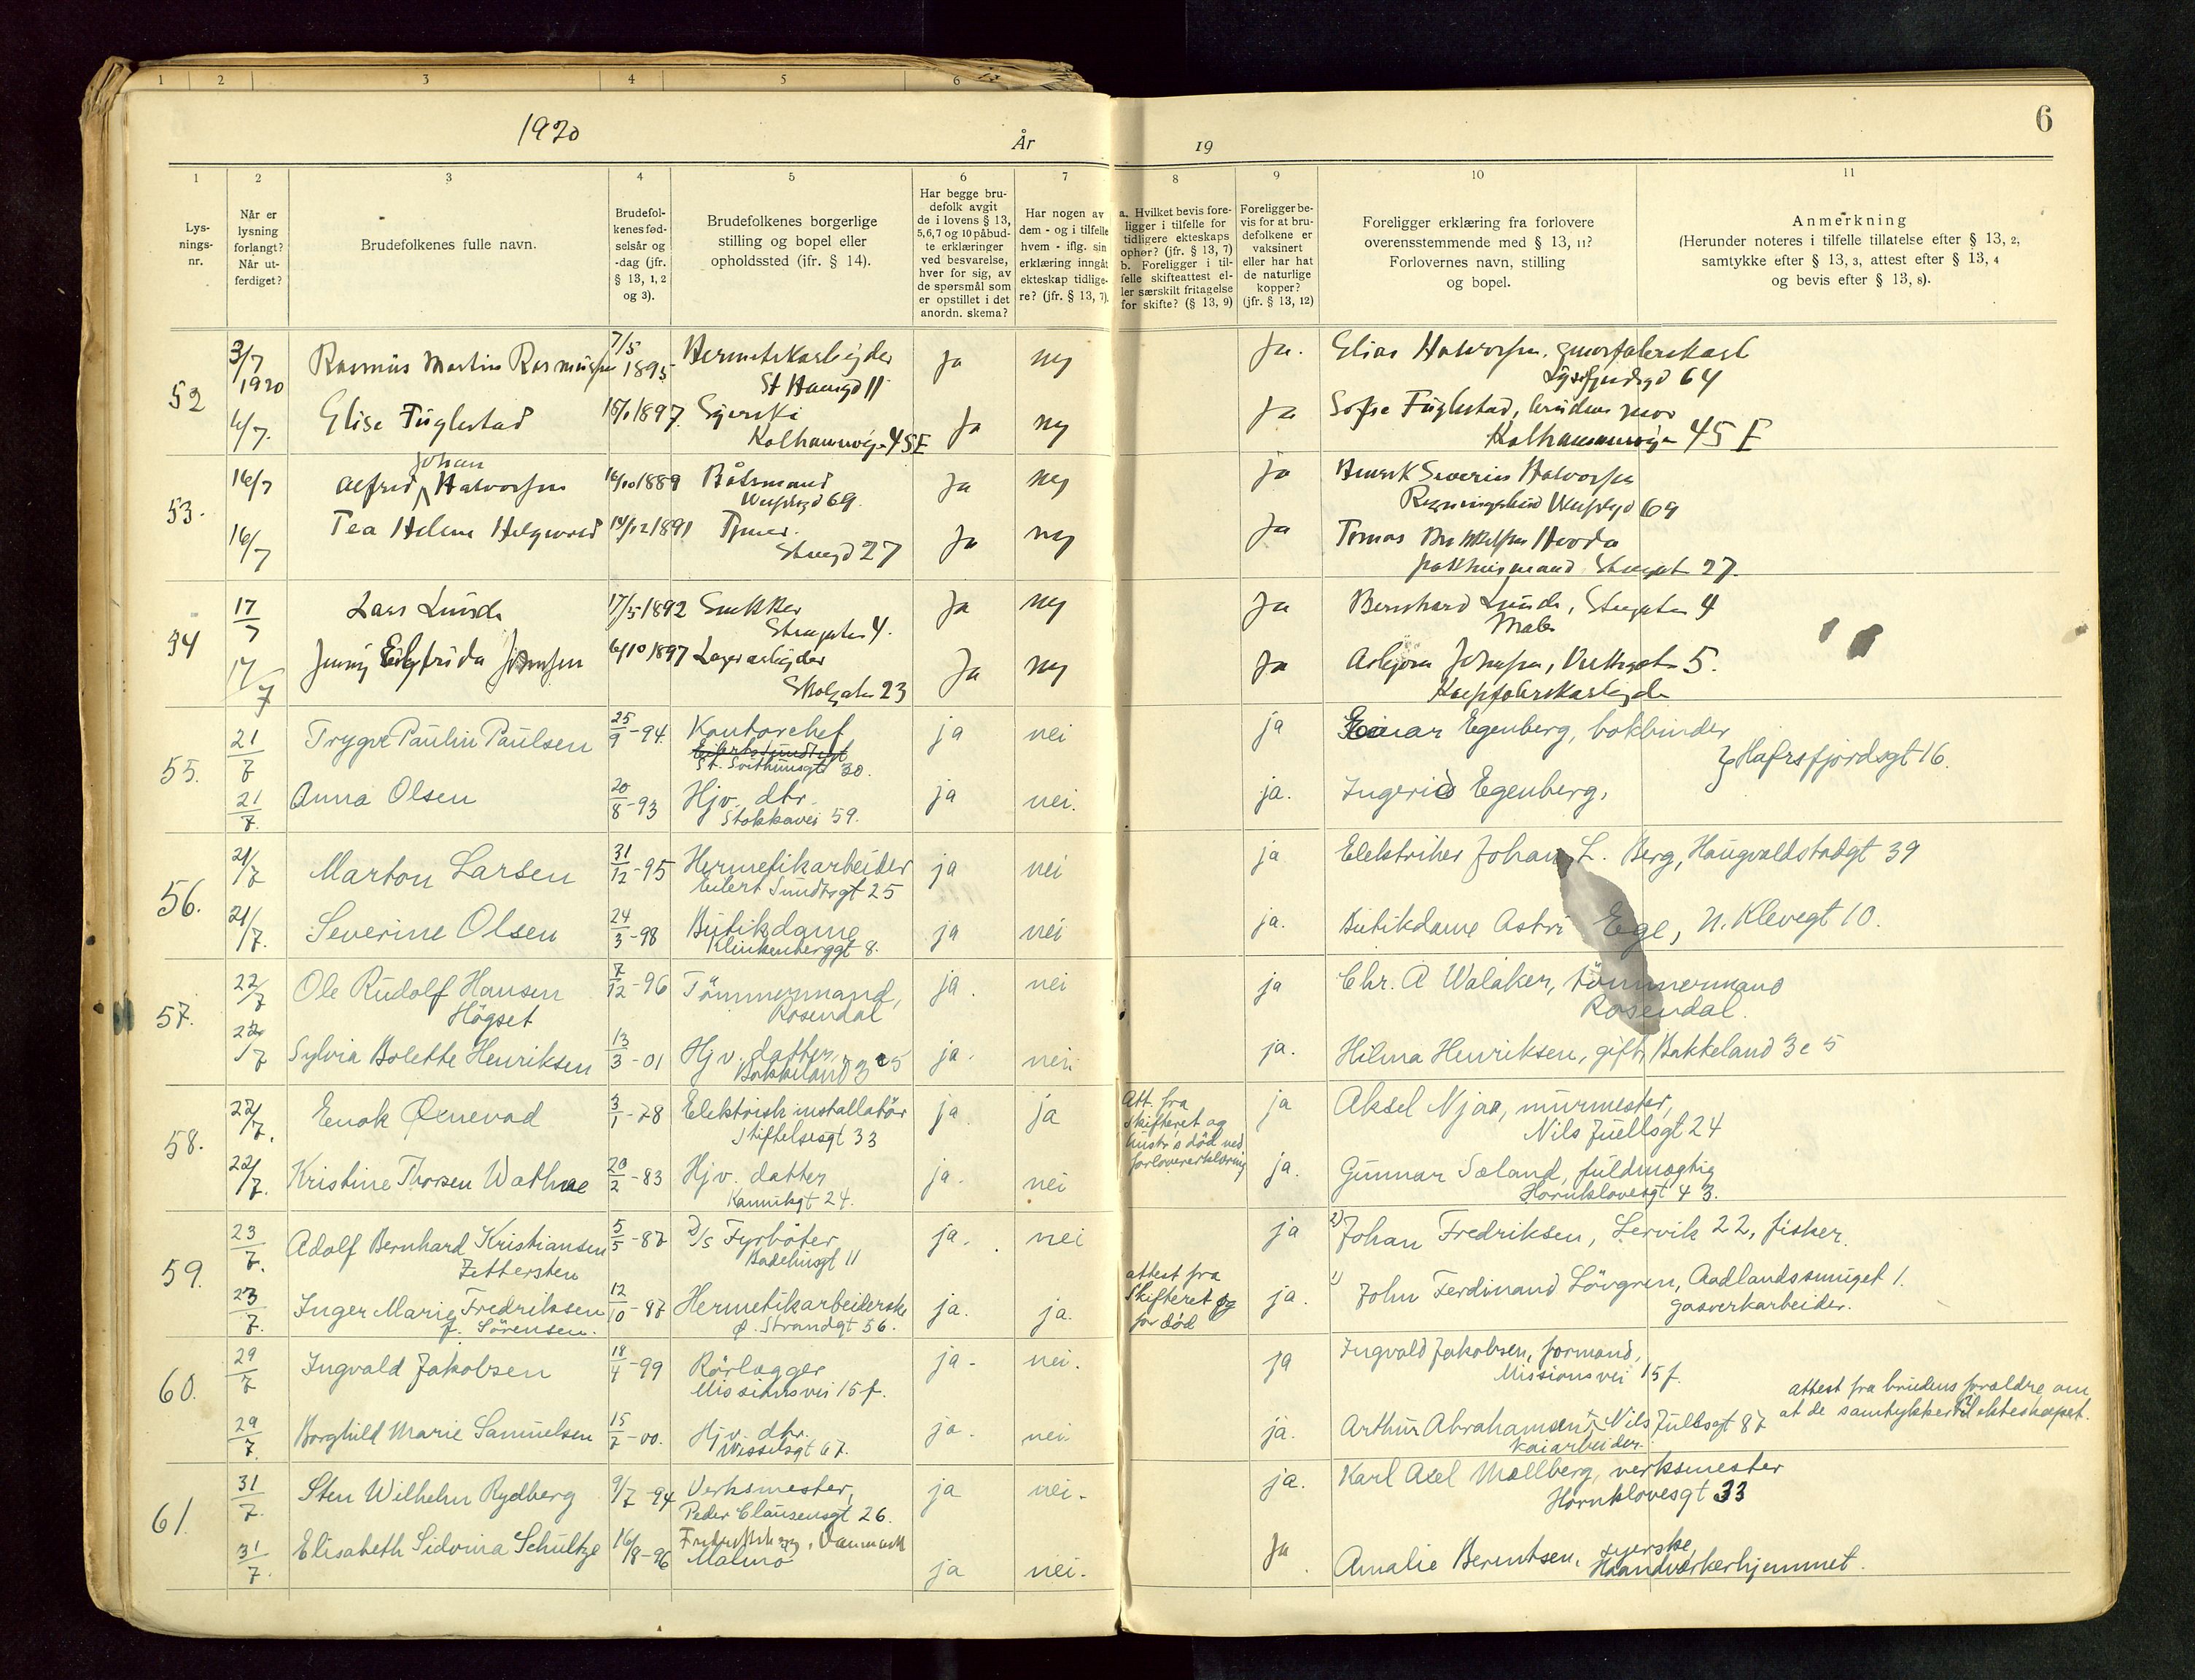 1 2 3 4 5 6
1920
År
19
6
1 2 3 4 5 6 7 8 9 10 11
Lys-
nings-
nr.
Når er
lysning
forlangt?
Når ut-
ferdiget?
Brudefolkenes fulle navn.
Brudefol-
kenes fød-
selsår og
-dag (jfr.
§ 13, 1, 2
og 3).
Brudefolkenes borgerlige
stilling og bopel eller
opholdssted (jfr. § 14).
Har begge bru-
defolk avgit
de i lovens § 13,
5,6,7 og 10 påbud-
te erklæringer
ved besvarelse,
hver for sig, av
de spørsmål som
er opstillet i det
anordn. skema?
Har nogen av
dem - og i tilfelle
hvem - iflg. sin
erklæring inngåt
ekteskap tidlige-
re? (jfr. § 13, 7).
a. Hvilket bevis fore-
ligger i tilfelle for
tidligere ekteskaps
ophør? (jfr. § 13, 7)
b. Foreligger i til-
felle skifteattest el-
ler særskilt fritagelse
for skifte? (§ 13, 9)
Foreligger be-
vis for at bru-
defolkene er
vaksinert
eller har hat
de naturlige
kopper?
(jfr. § 13, 12)
Foreligger erklæring fra forlovere
overensstemmende med § 13, 11?
Forlovernes navn, stilling
og bopel.
Anmerkning
(Herunder noteres i tilfelle tillatelse efter § 13, 2,
samtykke efter § 13, 3, attest efter § 13, 4
og bevis efter § 13, 8).
52 3/7 1920 Rasmus Martin Rasmussen 7/5 1895 Hermetikarbejder ja nej ja. Elias Halvorsen,
St Hansgd 11 64
4/7. Elise Fuglestad 1897. Syerske ja nej ja Sofie Fuglestad, brudens mor
45 E 45 E
53. 16/7 Alfred Johan Halvorsen 1889 Båtsmand ja nej ja Henrik Severin Halvorsen
69. 69
16/7 Tea Helene 14/12 1891 ja nej ja Tomas
27 pakhusmand 27.
54 17/7 Lars Lunde 17/5 1892 Snekker ja nej ja Bernhard Lunde, 4
4. Maler
17/7 Jenny 1897 Lagerarbejder ja nej ja 5.
Skolgaten 23
55. 21/7 Trygve Paulin Paulsen 25/9-94. Kontorchef ja nei ja Einar Egenberg, bokbinder
St. Svithunsgt 30. } Hafrsfjordsgt 16.
21/7. Anna Olsen 20/8-93 Hjv. dtr. ja nei. ja. Ingerid Egenberg,
Stokkavei 59.
56. 21/7 Marton Larsen 31/12-95 Hermetikarbeider ja nei ja Elektriker Johan L. Berg, Haugvaldstadgt 39
Eilert Sundtsgt 25
21/7. Severine Olsen 24/3-98 Butikdame ja nei ja. Butikdame Astri Ege, N. Klevegt 10.
Klinkenberggt 8.
57. 22/7 Ole Rudolf Hansen 7/12-96 Tömmermand, ja. nei ja Chr. A Walaker, tömmermand
Högset Rosendal Rosendal.
22/7 Sylvia Bolette Henriksen 13/3-01 Hjv. datter, ja. nei ja. Hilma Henriksen, gift, Bakkeland 3 e 5
Bakkeland 3 e 5
58. 22/7. Enok Ørnevad 3/1-78 Elektrisk installatör ja ja Att. fra ja Aksel Njaa, murmester,
Stiftelsesgt 33 skifteret og Nils Juellsgt 24
hustr's död ved
forlovererklæring
22/7. Kristine Thorsen Wathne 20/2-83 Hjv. datter ja. nei ja. Gunnar Sæland, fuldmægtig
Kannikgt 24. Hornklovesgt 43.
59. 23/7. Adolf Bernhard Kristiansen 5/5-87 D/S Fyrböter ja. nei ja 2) Johan Fredriksen, Lervik 22, fisker.
Zettersten Badehusgt 11
23/7. Inger Marie Fredriksen 12/10-87 Hermetikarbeiderske ja. ja. attest fra ja. 1) John Ferdinand Lövgren, Aadlandssmuget 1.
f. Sörensen. Ø. Strandgt 56. Skifteret og gasverkarbeider.
for död
60. 29/7 Ingvald Jakobsen 18/4-99 Rörlægger ja - nei. ja Ingvald Jakobsen, formand,
Missionsvei 15 f. Missionsvei 15 f.
attest fra brudens forældre om
at de samtykker til ekteskapet.
29/7. Borghild Marie Samuelsen 15/7-00. Hjv. dtr. ja. nei ja. Arthur Abrahamsen, Nils Juellsgt 87
Wesselsgt 67. Kaiarbeider.
61. 31/7. Sten Wilhelm Rydberg 9/7-94 Verksmester, ja nei. ja. Karl Axel Mællberg, verksmester
Peder Clausensgt 26. Hornklovesgt 33
31/7. Elisabeth Sidonia Schultze 16/8-96 Danmark ja nei. ja Amalie Berentsen, syerske,
Malmö Haandværkerhjemmet.